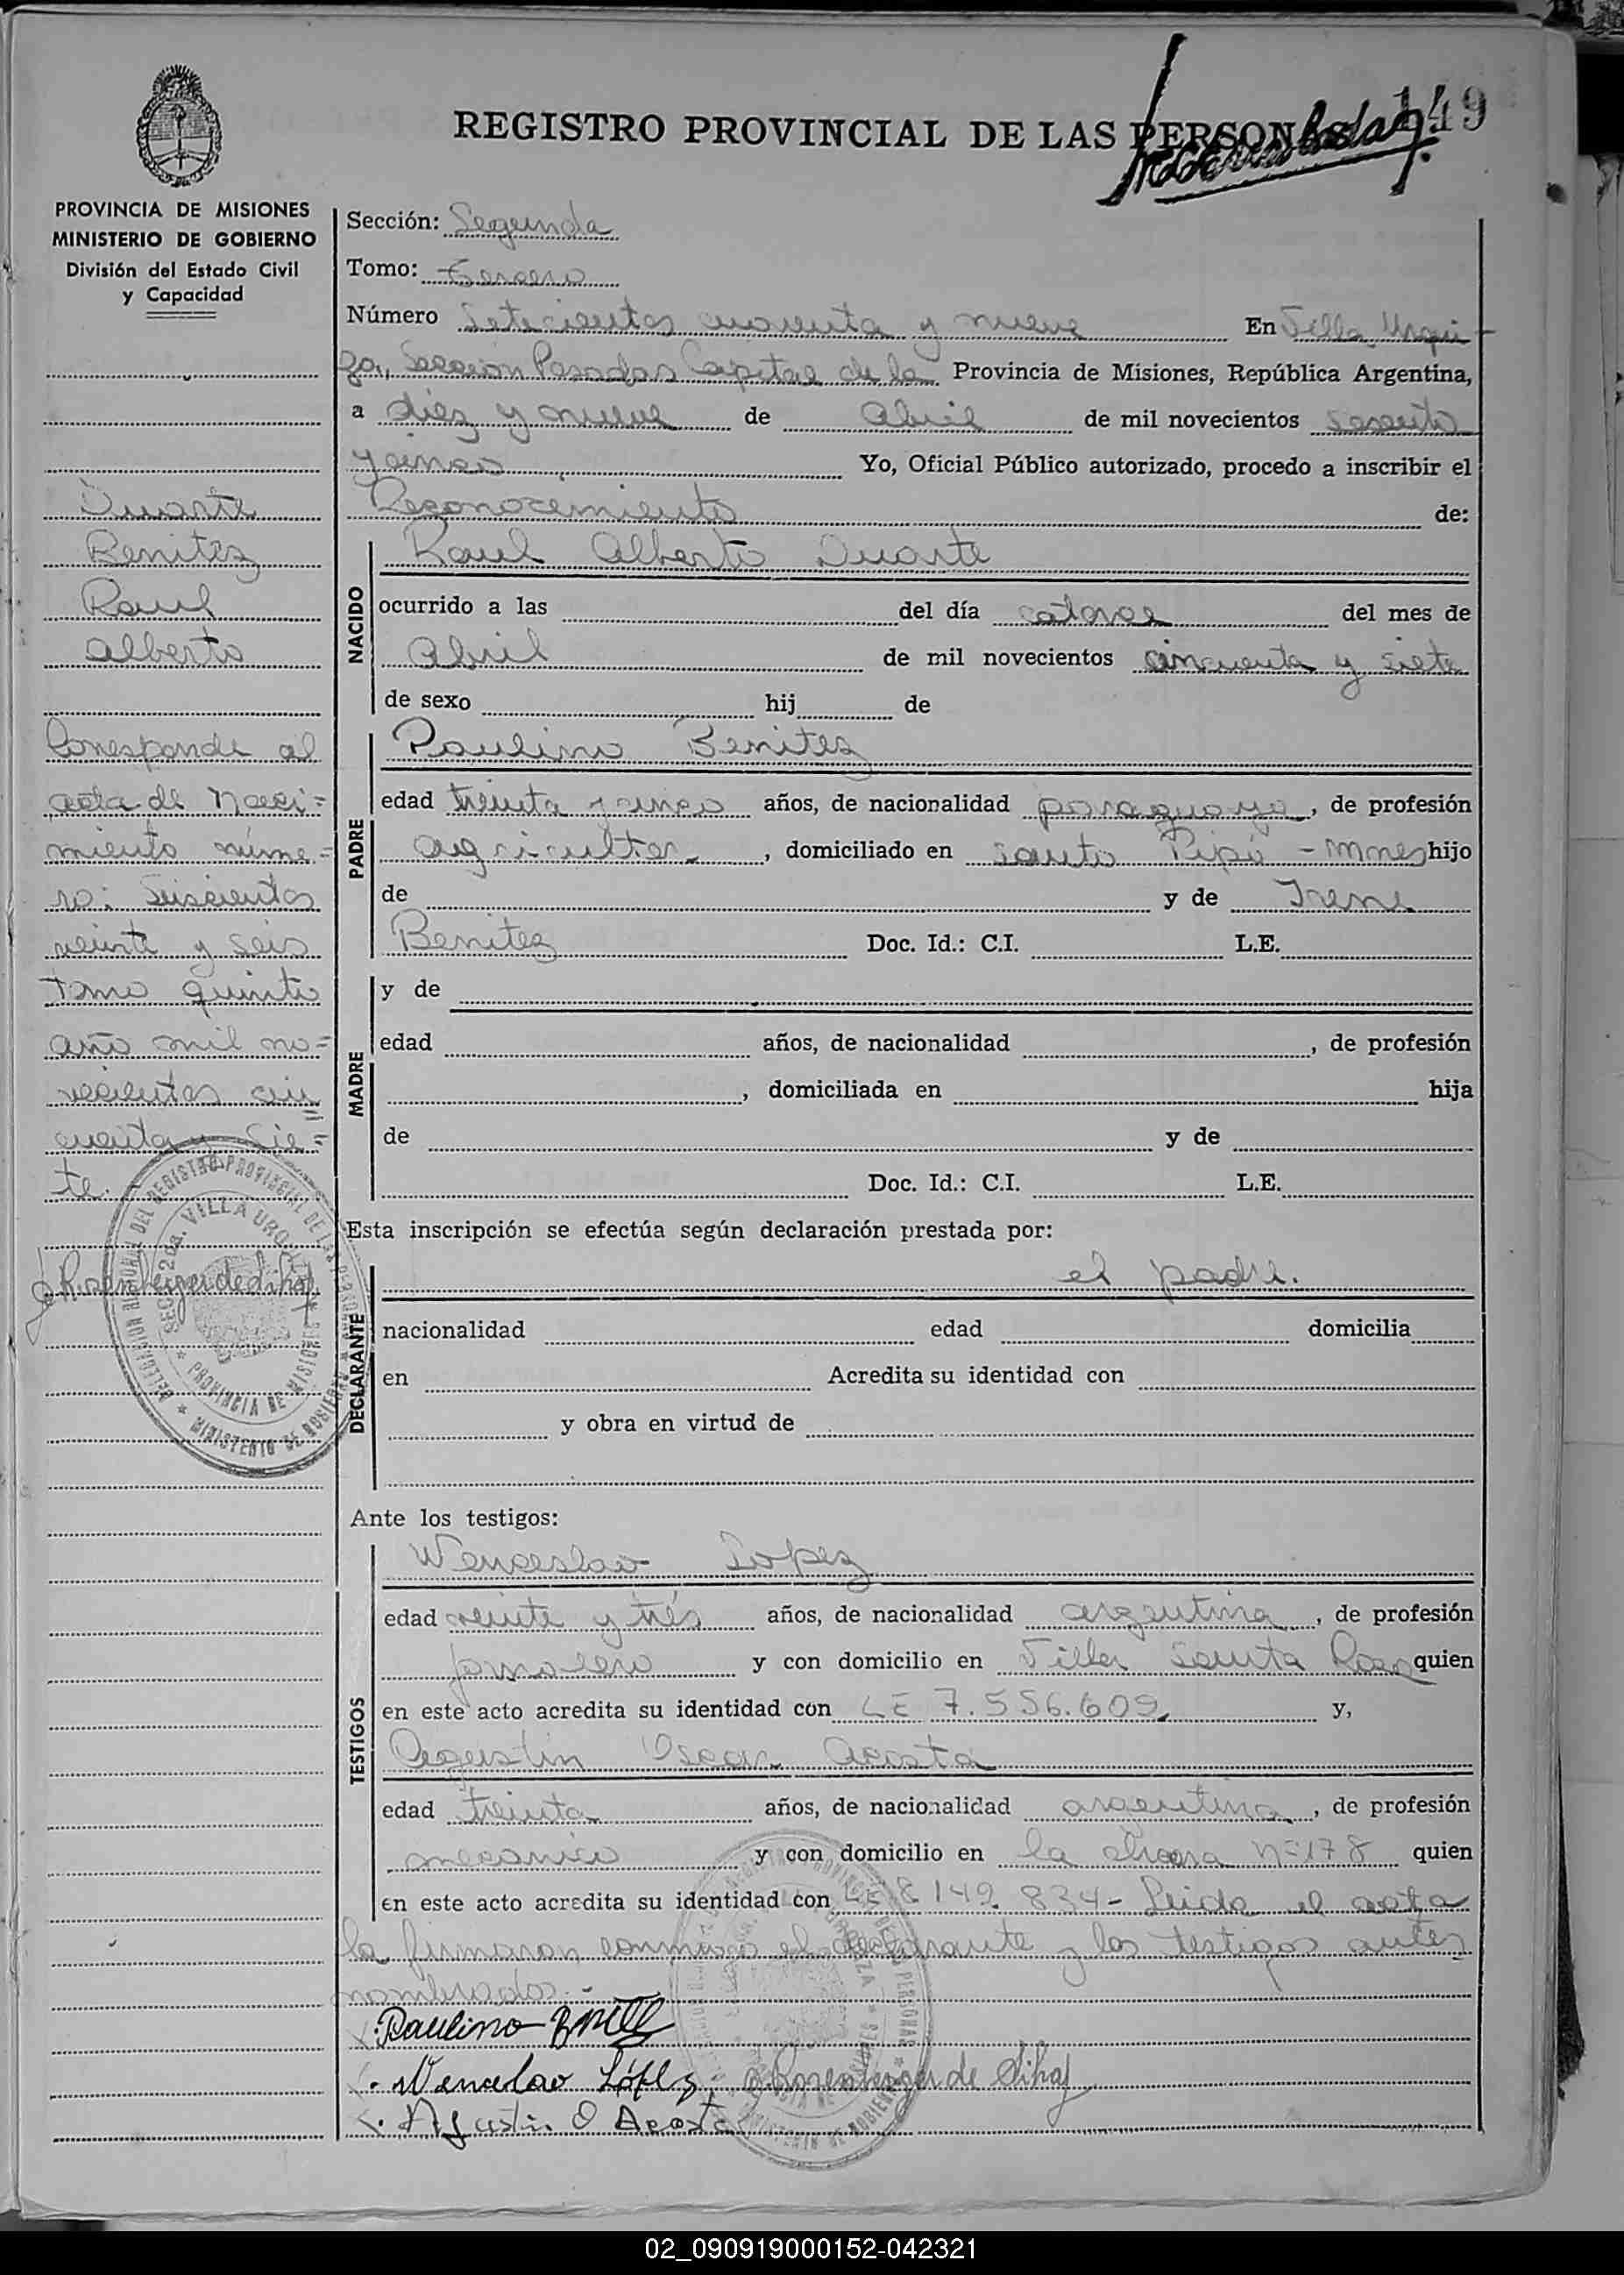 149
REGISTRO PROVINCIAL DE LAS PERSONAS
PROVINCIA DE MISIONES
MINISTERIO DE GOBIERNO
División del Estado Civil
y Capacidad
Duarte
Benitez
Raul
Alberto
Corresponde al
acta de Naci=
miento núme=
ro: Seiscientos
veinte y seis
tomo quinto
año mil no=
vecientos cin
cuenta y sie=
te.
Sección: Segunda
Tomo: tercero
Número Setecientos cuarenta y nueve En Villa Urqui
za, Sección Posadas Capital de la Provincia de Misiones, República Argentina,
a diez y nueve de Abril de mil novecientos sesenta
y cinco Yo, Oficial Público autorizado, procedo a inscribir el
Reconocimiento de:
NACIDO
Raul Alberto Duarte
ocurrido a las del día catorce del mes de
Abril de mil novecientos cincuenta y siete
de sexo hij de
PADRE
Paulino Benitez
edad treinta y cinco años, de nacionalidad paraguaya, de profesión
agricultor, domiciliado en Santo Pipó - Mnes hijo
de y de Irene
Benitez Doc. Id.: C.I. L.E.
MADRE
y de
edad años, de nacionalidad , de profesión
, domiciliada en hija
de y de
Doc. Id.: C.I. L.E.
Esta inscripción se efectúa según declaración prestada por:
DECLARANTE
el padre.
nacionalidad edad domicilia
en Acredita su identidad con
y obra en virtud de
Ante los testigos:
TESTIGOS
Wenceslao Lopez
edad veinte y trés años, de nacionalidad argentina, de profesión
jornalero y con domicilio en Villa Santa Rosa quien
en este acto acredita su identidad con LE 7.556.609 y,
Agustin Oscar Acosta
edad treinta años, de nacionalidad argentina, de profesión
mecanico y con domicilio en la chacra Nº 178 quien
en este acto acredita su identidad con LE 8 142 834- Leida el acta
la firmaron conmigo el declarante y los testigos antes
nombrados.-
Paulino
Wencelao López
Agustin O Acosta
DELEGACION DEL REGISTRO PROVINCIAL DE LAS PERSONAS
SEC. 2da. VILLA URQUIZA
PROVINCIA DE MISIONES
MINISTERIO DE GOBIERNO
02_090919000152-042321